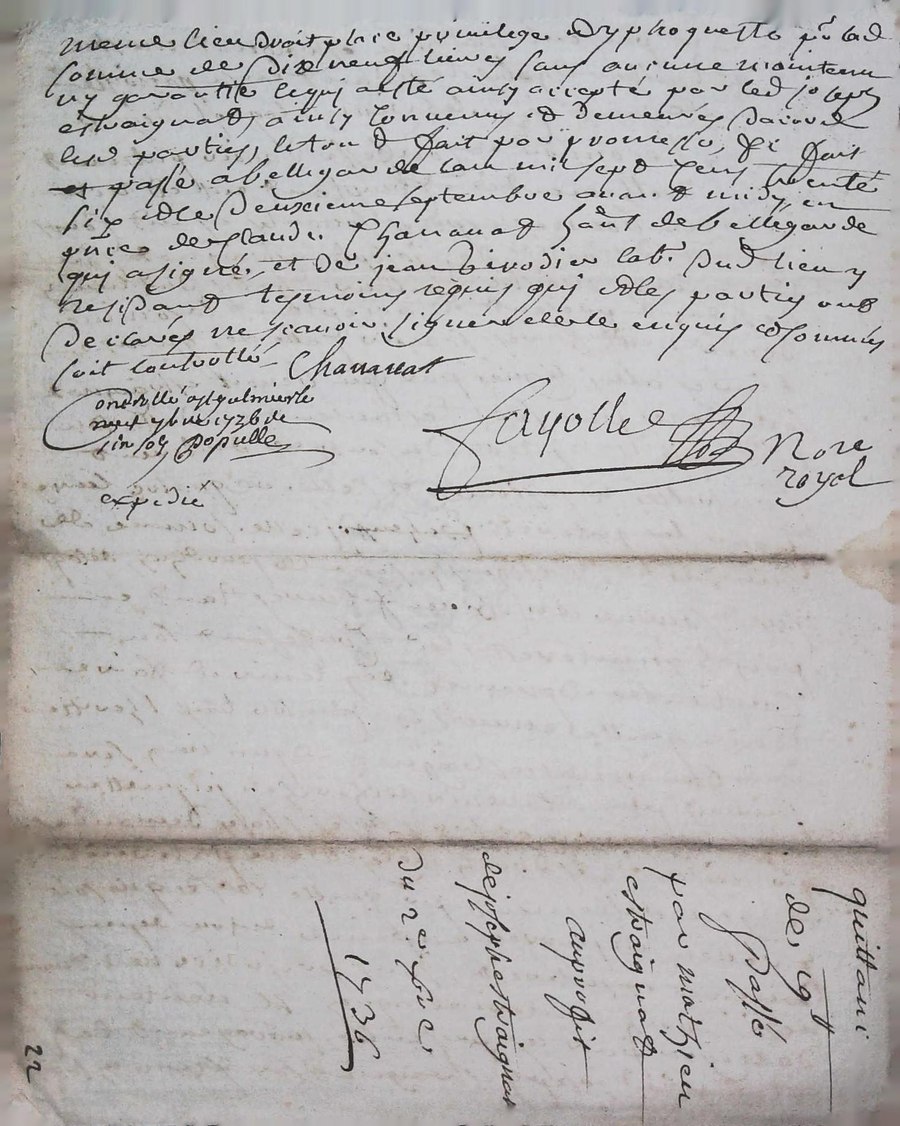 meme lieu droit place privilege dyphoquette pr lad
somme de dix neuf livres sans aucune maintenu
ny garantie ce qui a esté ainsy accepté par led joseph
estraignat, ainsy convenus et demeurés d'acord
lesd parties, le tout fait par promesse, &c fait
et passé a bellegarde lan mil sept cens trente
six & le deuxieme septembre avant midy, en
pnce de claude Chananat hànt de bellegarde
qui a signé, et de jean Birodier labr dud lieu y
residant tesmoins requis qui & les parties ont
declarés ne scavoir signer de ce enquis & sommés
soit controllé Chananat
Controllé a St galmier le
neuf 7bre 1736 
cinq sols populle
fayolle Nore
royal
expedié
quittance
de 19 lt
passée
par mathieu
estraignat
au proffit
de joseph estraignat
du 2e 7bre
1736
22